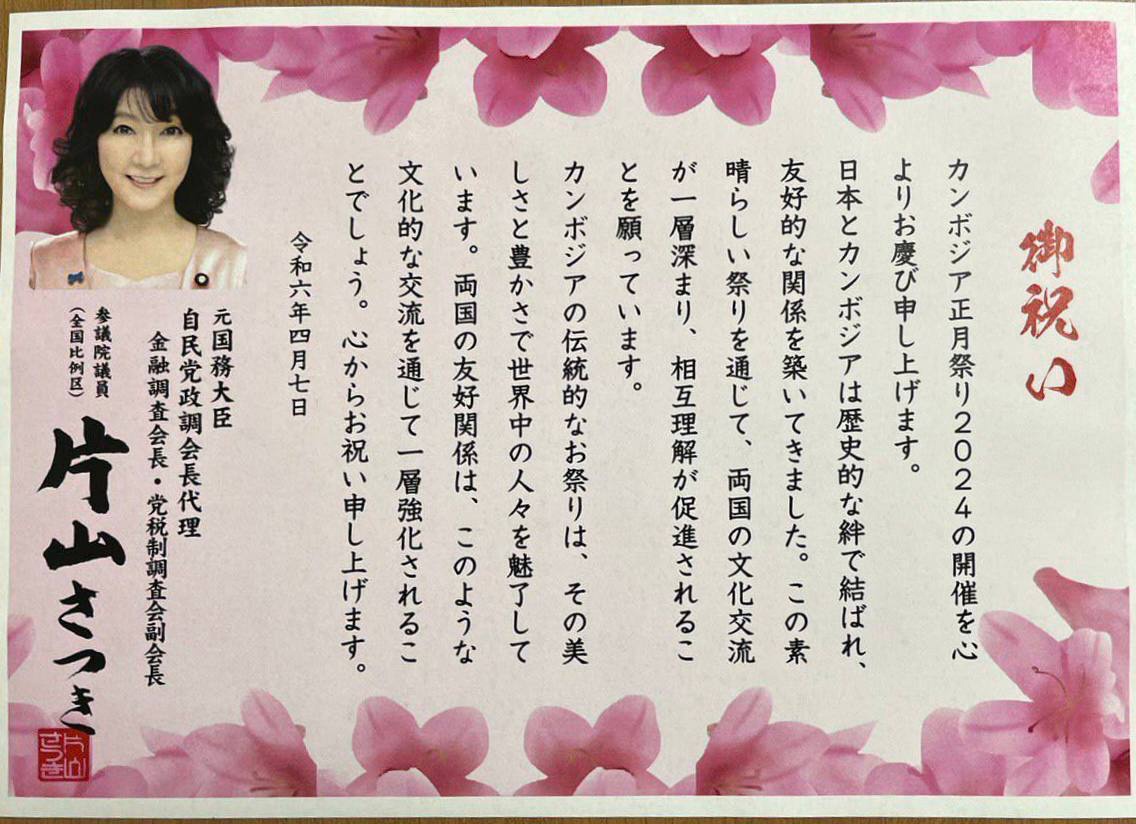 御祝い
カンボジア正月祭り2024の開催を心
よりお慶び申し上げます。
日本とカンボジアは歴史的な絆で結ばれ、
友好的な関係を築いてきました。この素
晴らしい祭りを通じて、両国の文化交流
が一層深まり、相互理解が促進されるこ
とを願っています。
カンボジアの伝統的なお祭りは、その美
しさと豊かさで世界中の人々を魅了して
います。両国の友好関係は、このような
文化的な交流を通じて一層強化されるこ
とでしょう。心からお祝い申し上げます。
令和六年四月七日
元国務大臣
自民党政調会長代理
金融調査会長・党税制調査会副会長
参議院議員
（全国比例区）
片山さつき
片山
さつき